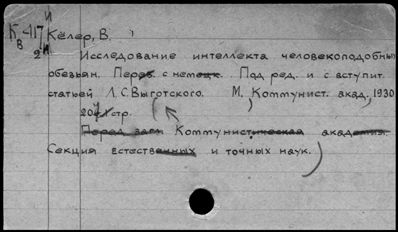 И
К-417 Кёлер, В.
В
2И Исследование интеллекта человекоподобных
обезьян. Перев. с немецк. Под ред. и с вступит.
статьей Л.С.Выготского. М., Коммунист. акад., 1930
207 стр.
Перед загл Коммунистическая академия.
Секция естественных и точных наук.)